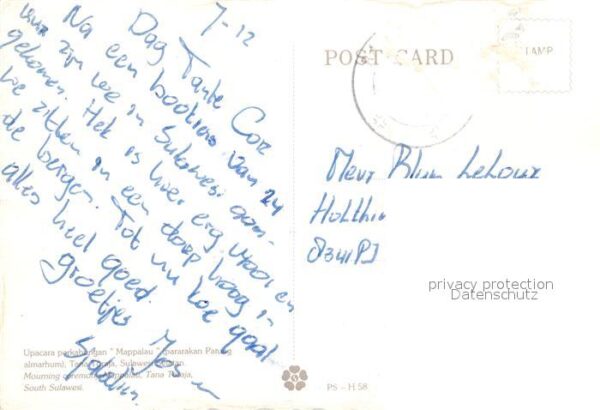 7-12
Dag Tante Cor
Na een boottocht van 24
uur zijn we in Sulawesi aan-
gekomen. Het is hier erg mooi en
we zitten in een dorp hoog in
de bergen. Tot nu toe gaat
alles heel goed.
groetjes
Jos
Upacara perkabungan " Mappalau " (pararakan
almarhum), Tana Toraja, Sulawesi Selatan.
Mourning ceremony Mappalau, Tana Toraja,
South Sulawesi.
POST CARD
STAMP
Mevr Blum LeLoux
8341PJ
privacy protection
Datenschutz
PS - H 58